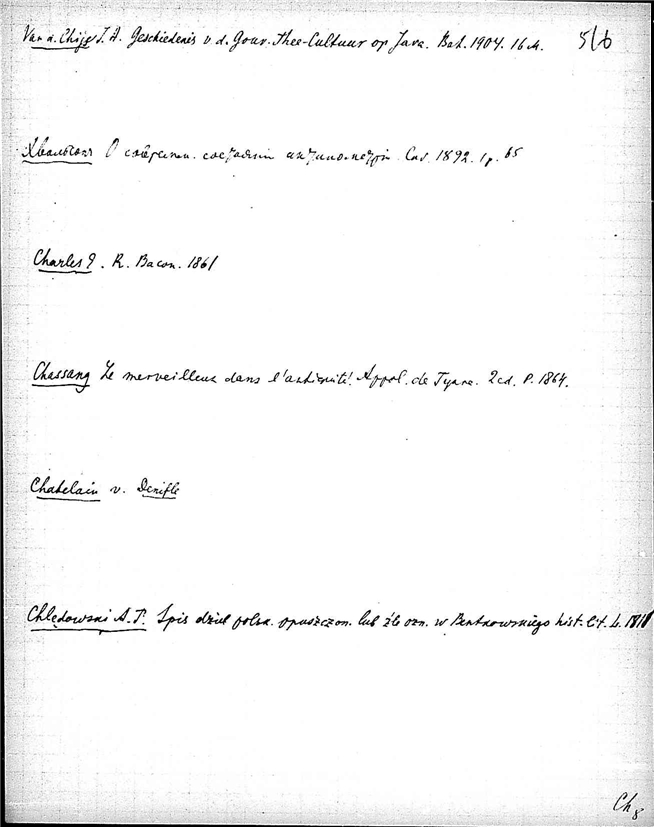 Van d. Chijs J. A. Geschiedenis v. d. Gouv. Thee-Cultuur op Java. Bat. 1904. 16 M. 5/6
О соврєм. состоянiи Спб. 1892. 1 р. 65
Charles E. R. Bacon. 1861
Chassang Le merveilleux dans l'antiquité. Appol. de Tyane. 2 ed. P. 1864.
Chatelain v. Denifle
Chlędowski A. T. Spis dzieł polsk. opuszczon. lub źle ozn. w Bentkowskiego hist. lit. L. 1818
Ch 8